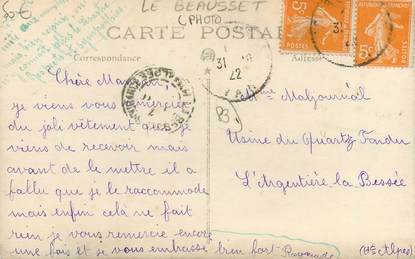 50€
LE BEAUSSET
(PHOTO)
CARTE POSTALE
Correspondance
Adresse
5c POSTES
5c
31
22
Chère
je viens vous remercier
du joli vêtement que je
viens de recevoir mais
avant de le mettre il a
fallu que je le raccommode
mais enfin celà ne fait
rien je vous remercie encore
une fois et je vous embrasse bien fort Raymonde
Mme Maljournal
Usine du Quartz Fondu
L'Argentière la Bessée
(Htes Alpes)